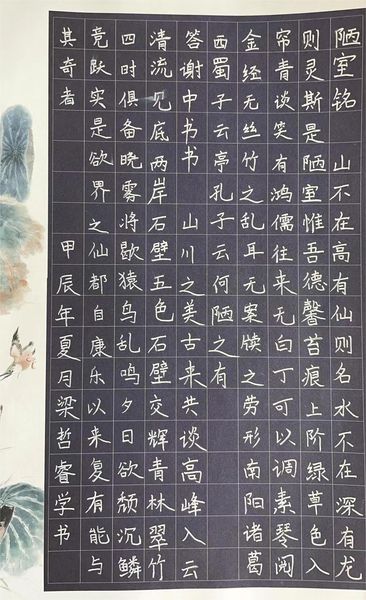 陋室铭 山不在高有仙则名水不在深有龙
则灵斯是陋室惟吾德馨苔痕上阶绿草色入
帘青谈笑有鸿儒往来无白丁可以调素琴阅
金经无丝竹之乱耳无案牍之劳形南阳诸葛
西蜀子云亭孔子云何陋之有
答谢中书书 山川之美古来共谈高峰入云
清流见底两岸石壁五色石壁交辉青林翠竹
四时俱备晓雾将歇猿鸟乱鸣夕日欲颓沉鳞
竞跃实是欲界之仙都自康乐以来复有能与
其奇者 甲辰年夏月梁哲睿学书